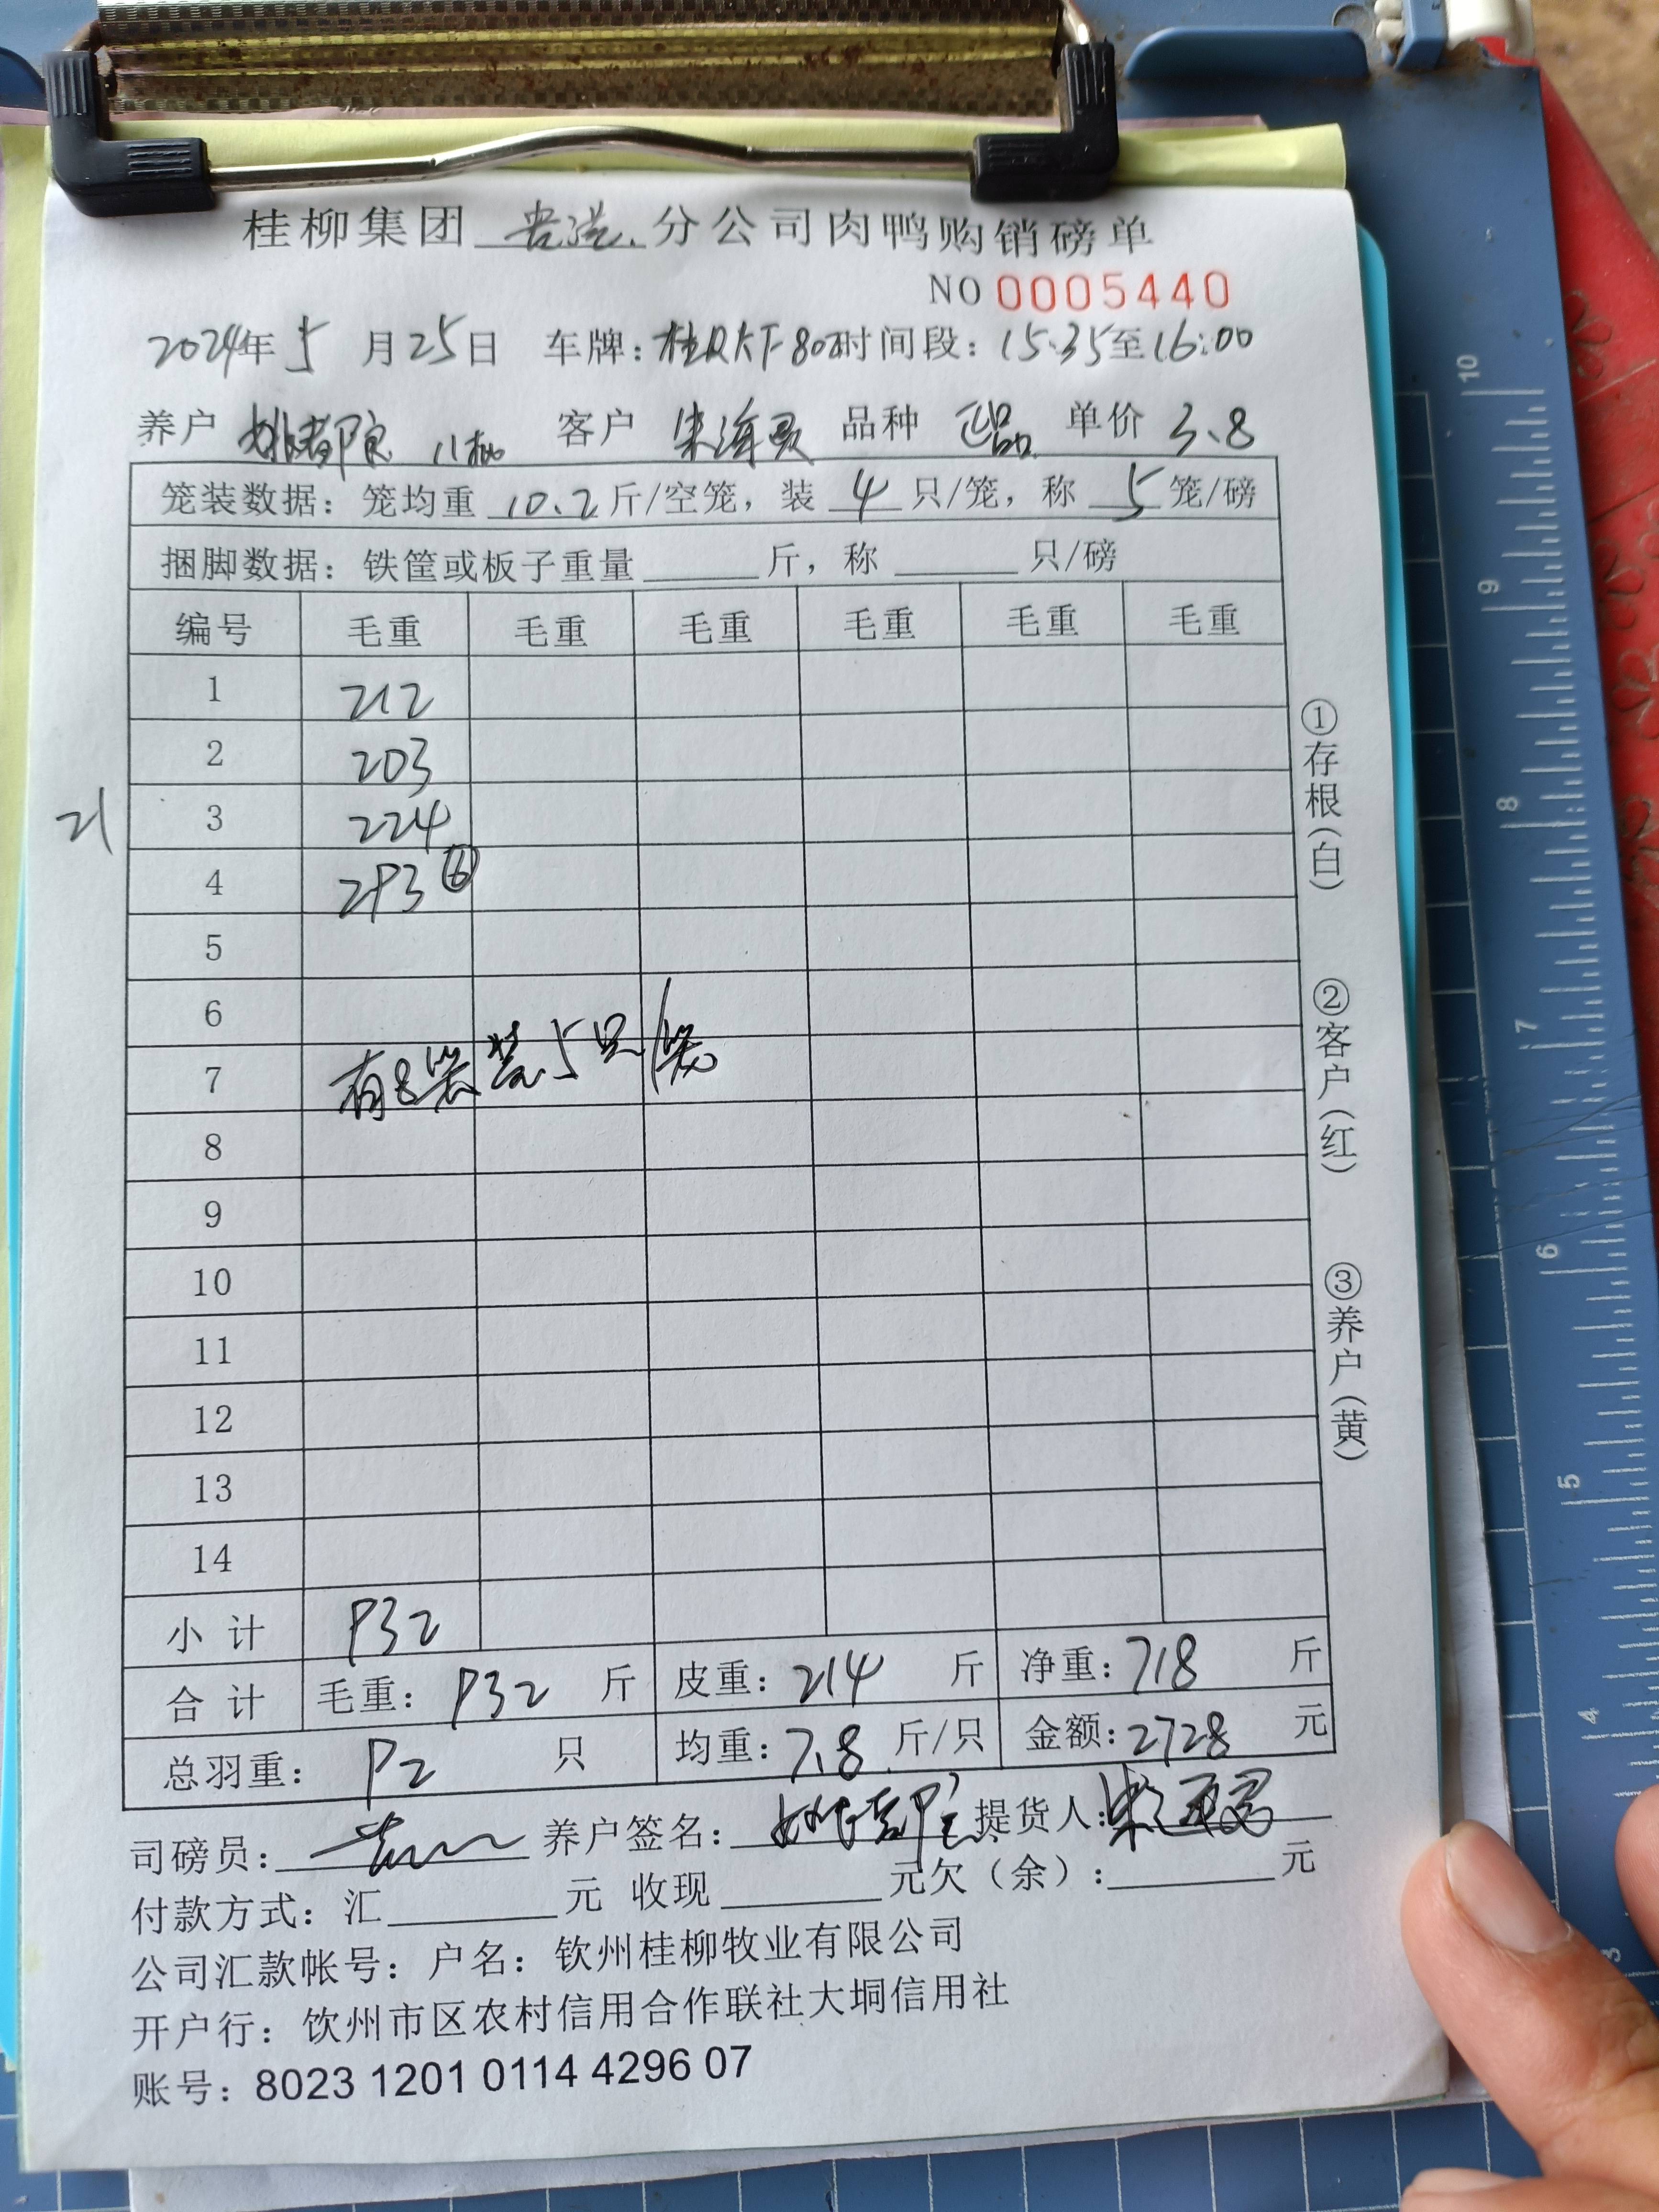 桂柳集团 贵港 分公司肉鸭购销磅单
NO 0005440
2024年 5 月 25 日 车牌: 时间段: 15:35 至 16:00
养户 11批 客户 品种 正品 单价 3.8
笼装数据: 笼均重 10.2 斤/空笼, 装 4 只/笼, 称 5 笼/磅
捆脚数据: 铁筐或板子重量 斤, 称 只/磅
编号 毛重 毛重 毛重 毛重 毛重 毛重
1 212
2 203
21
3 224
4 293 ⑥
5
6
7 有8笼装5只/笼
8
9
10
11
12
13
14
小 计 932
合 计 毛重: 932 斤 皮重: 214 斤 净重: 718 斤
总羽重: 92 只 均重: 7.8 斤/只 金额: 2728 元
司磅员: 养户签名: 提货人:
付款方式: 汇 元 收现 元 欠(余): 元
公司汇款帐号: 户名: 钦州桂柳牧业有限公司
开户行: 钦州市区农村信用合作联社大垌信用社
账号: 8023 1201 0114 4296 07
①存根(白)
②客户(红)
③养户(黄)
10
9
8
7
6
5
4
3